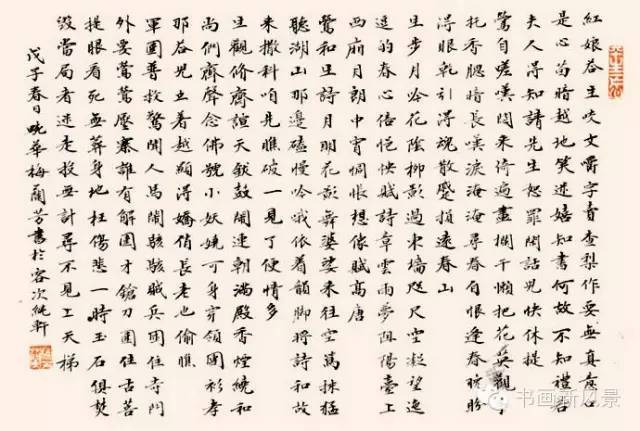 紅娘答主咬文嚼字賣查梨作耍無真意
是心苗暗越地笑述嬉知書何故不知禮
夫人得知請先生恕罪閒話兒快休提
驚自嗟嘆閒來倚遍畫闌干懶把花英觀
托香腮暗長嘆淚淹淹尋春自恨逢春時盼
得眼乾引得魂散蹙損遠春山
生步月吟花陰柳影過東牆咫尺空凝望迤
逗的春心倍怏怏賦詩章雲雨夢阻陽臺上
西廂月朗中宵惆悵想像賦高唐
鶯和生詩月明花影舞婆娑來往空萬抹猛
聽湖山那邊磕慢吟哦依着韻脚將詩和故
來撒科咱先瞧破一見了便情多
生觀修齋諠天鈸鼓鬧連朝滿殿香煙繞和
尚們齊聲念佛號小妖嬈可身穿領團衫孝
那答兒立着越顯得嬌俏長老也偷瞧
軍圍普救驚聞人馬鬧駭駭賊兵圍住寺門
外要鶯鶯壓寨誰有解圍才鎗刀圍住古菩
提眼看死無葬身地枉傷悲一時玉石俱焚
毀當局者迷走投無計尋不見上天梯
戊子春日晚華梅蘭芳書於客次純軒
书画新风景